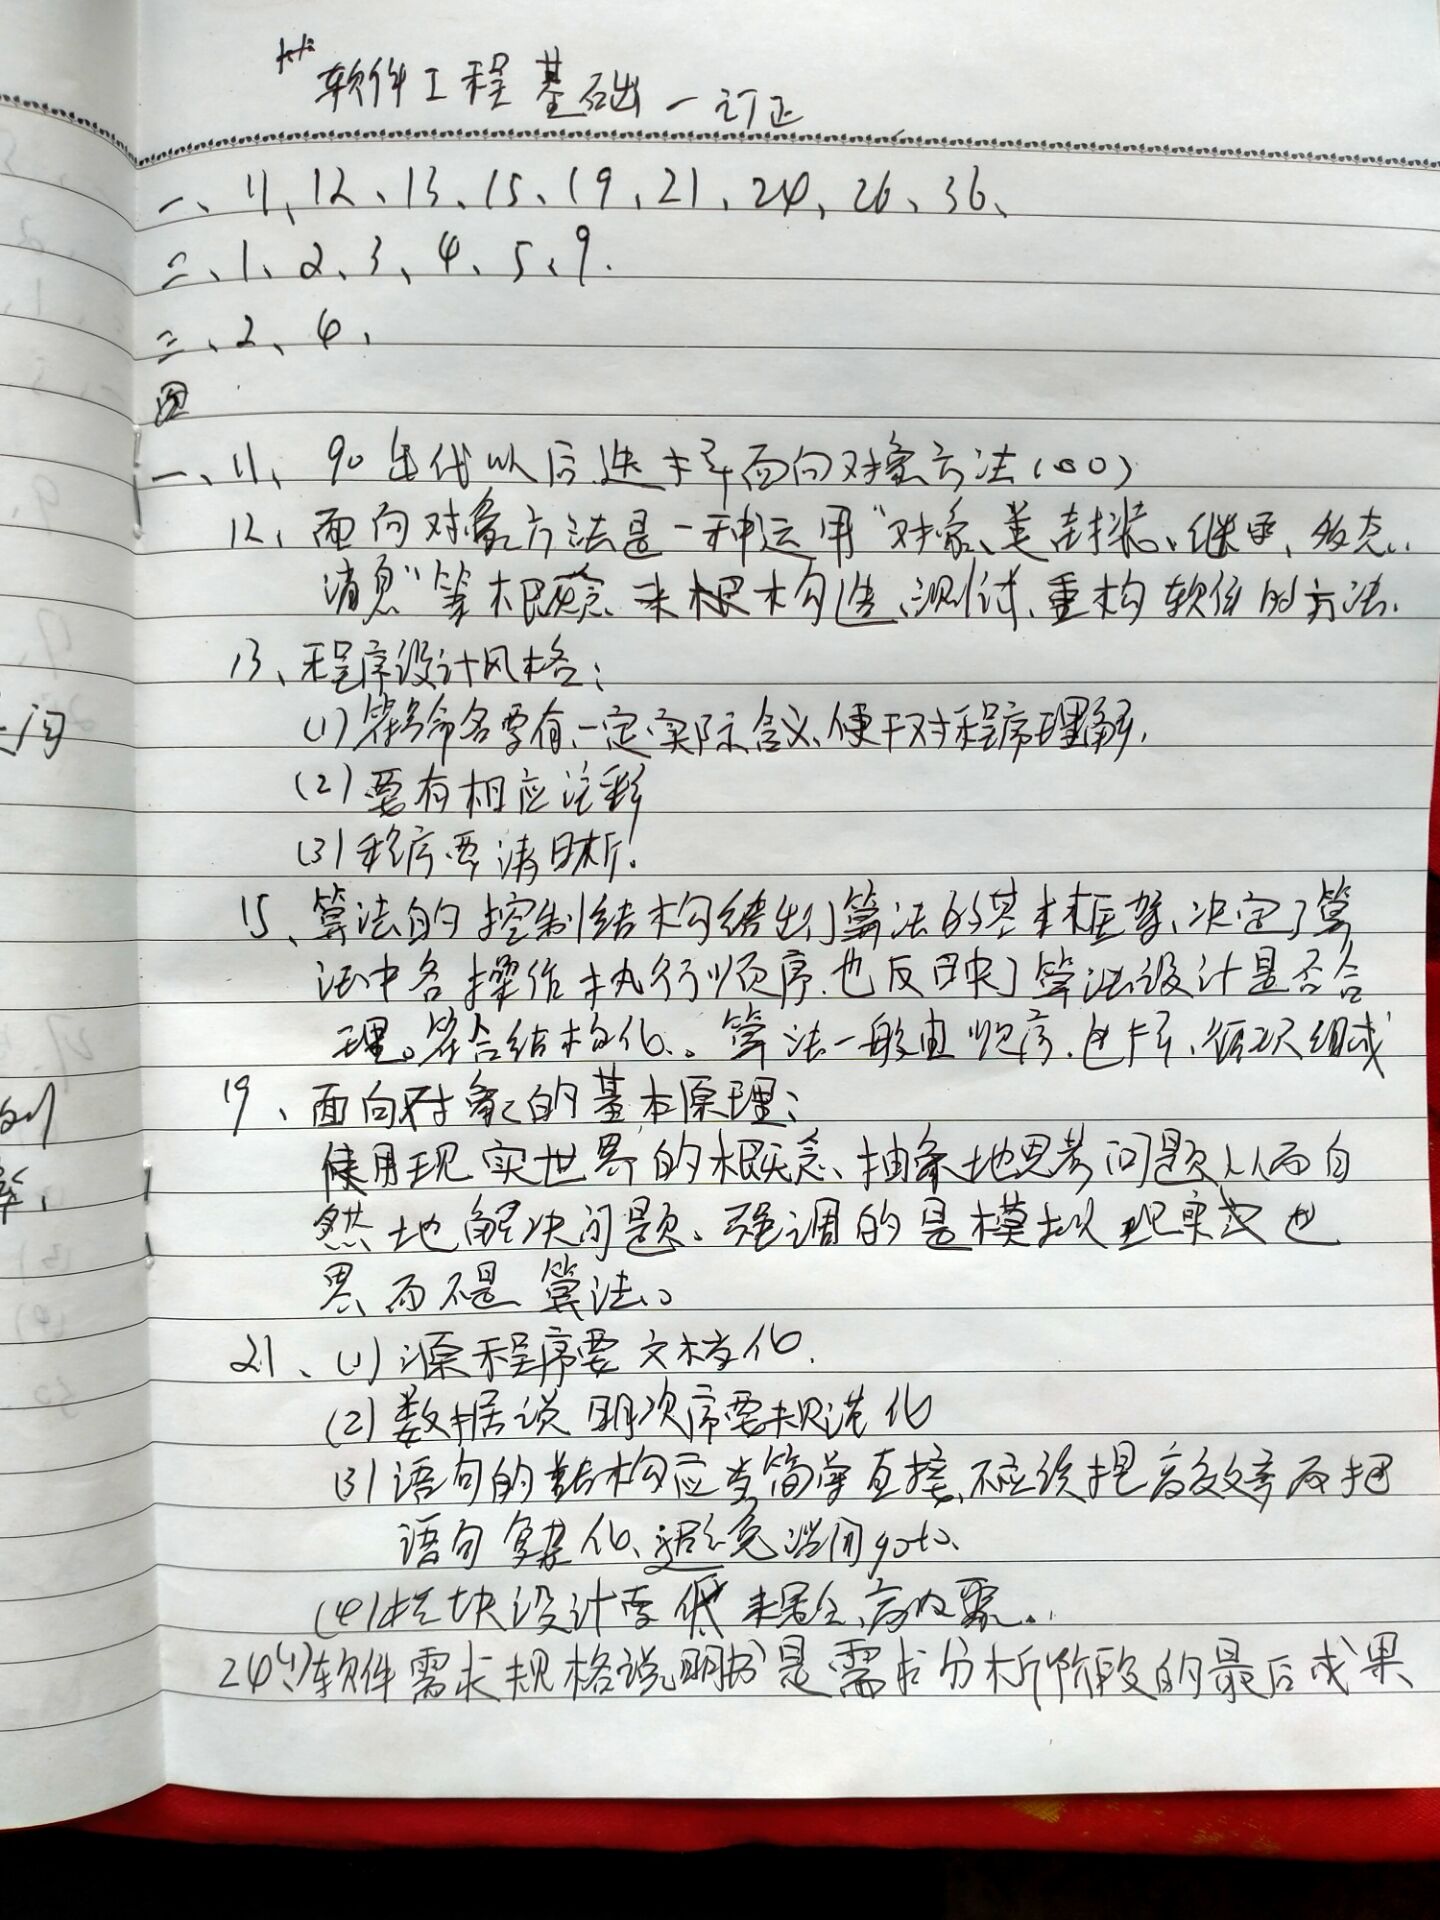 软件工程基础-订正
一、11、12、13、15、19、21、24、26、36、
二、1、2、3、4、5、9.
三、2、4、
四
一、11、90年代以后选择面向对象方法(OO)
12、面向对象方法是一种运用“对象、类、封装、继承、多态、
消息”等概念来构造、测试、重构软件的方法.
13、程序设计风格:
(1)符号命名要有一定实际含义、便于对程序理解.
(2)要有相应注释
(3)程序要清晰.
15、算法的控制结构给出了算法的基本框架、决定了算
法中各操作执行顺序.也反映了算法设计是否合
理。符合结构化。算法一般由顺序.选择、循环组成
19、面向对象的基本原理:
使用现实世界的概念、抽象地思考问题从而自
然地解决问题、强调的是模拟现实世
界而不是算法。
21、(1)源程序要文档化.
(2)数据说明次序要规范化
(3)语句的结构应当简单直接、不应该提高效率而把
语句复杂化、避免滥用goto.
(4)模块设计要低耦合、高内聚。
24(1)软件需求规格说明书是需求分析阶段的最后成果